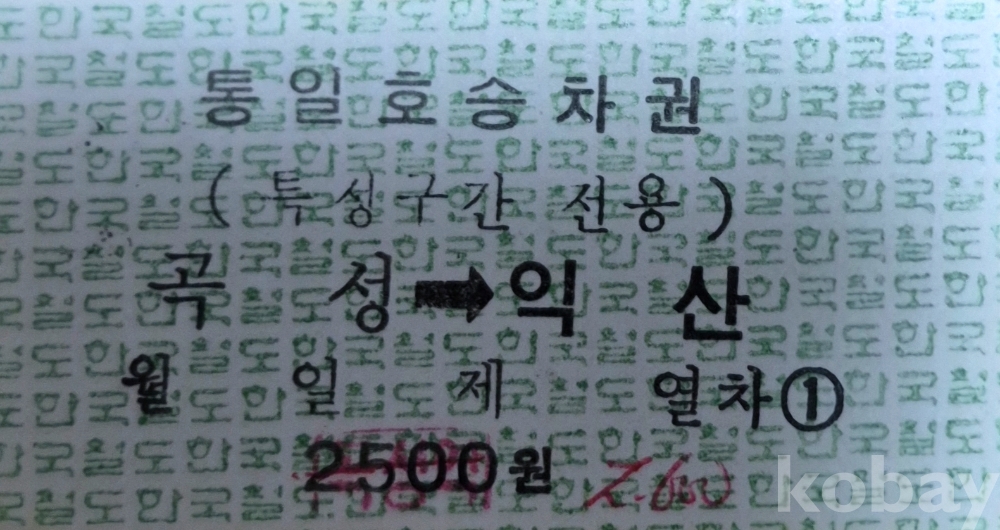 통일호승차권
(특정구간 전용)
곡 성➡익 산
월 일 제 열차①
2500원
kobay